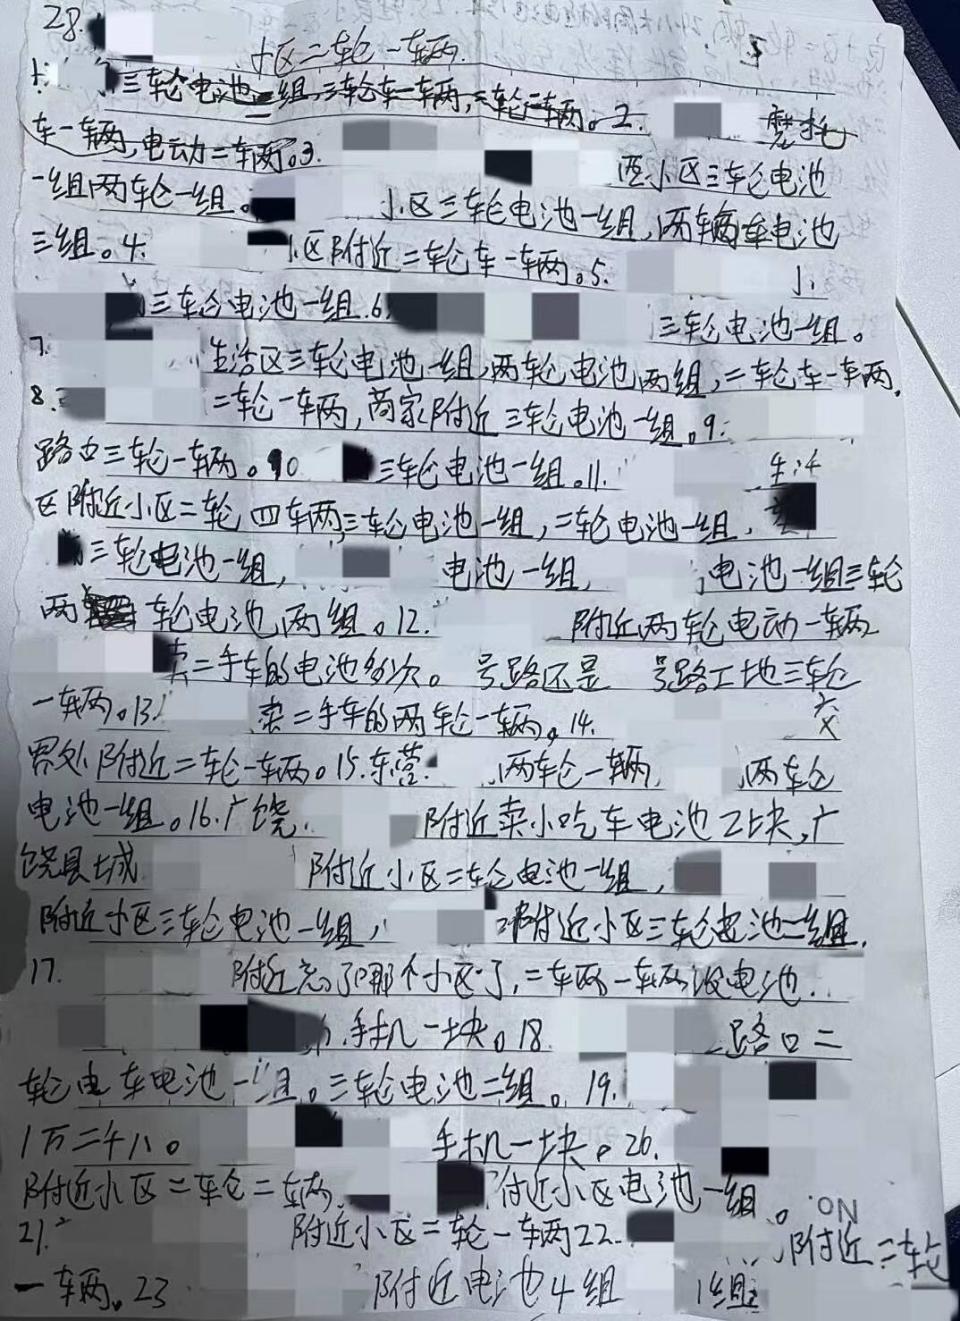 28. 小区二轮一车辆
1. 三轮电池一组,三轮车一车辆,三轮二车辆。2. 摩托
车一车辆,电动二车两。3. 西小区三轮电池
一组两轮一组。 小区三轮电池一组,两车辆车电池
三组。4. 小区附近二轮车一车两。5. 小
三轮电池一组.6. 三轮电池一组。
7. 生活区三轮电池一组,两轮电池两组,二轮车一车两.
8. 二轮一车两,商家附近三轮电池一组.9.
路中三轮一车两。10 三轮电池一组.11. 生活
区附近小区二轮四车两,三轮电池一组,二轮电池一组.
三轮电池一组, 电池一组, 电池一组三轮
两 轮电池两组。12. 附近两轮电动一车两
卖二手车的电池多次。 号路还是 号路工地三轮
一车两。13. 卖二手车的两轮一车两。14. 交
界处附近二轮一车两。15.东营. 两轮一车辆 两轮
电池一组。16.广饶. 附近卖小吃车电池2块,广
饶县城 附近小区二轮电池一组,
附近小区三轮电池一组, 附近小区三轮电池一组.
17. 附近忘了哪个小区了,二车两一车两没电池.
手机一块。18 路口二
轮电车电池一组。三轮电池二组。19.
1万二千八。 手机一块。20.
附近小区二车仑二车两 附近小区电池一组。 ON
21. 附近小区二轮一车两22. 附近三轮
一车两。23 附近电池4组 1组